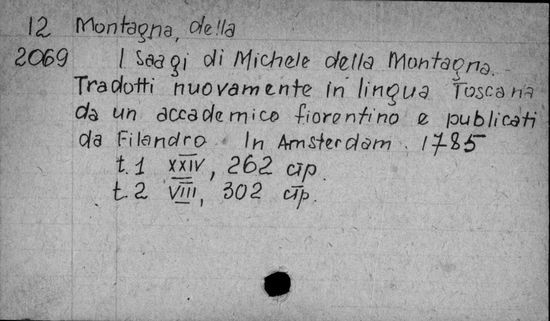 12 Montagna, della
2069 I Saagi di Michele della Montagna.
Tradotti nuovamente in lingua Toscana
da un accademico fiorentino e publicati
da Filandro. In Amsterdam. 1785
t. 1 XXIV, 262 стр.
t. 2 VIII, 302 стр.